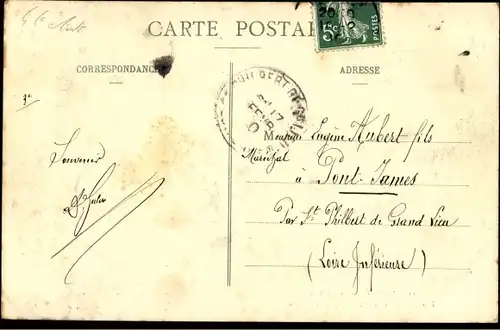 CARTE POSTALE
5c POSTES
CORRESPONDANCE
ADRESSE
Monsieur Eugène Hubert fils
Maréchal
à Pont-James
Souvenir
Par St Philbert de Grand Lieu
(Loire Inférieure)